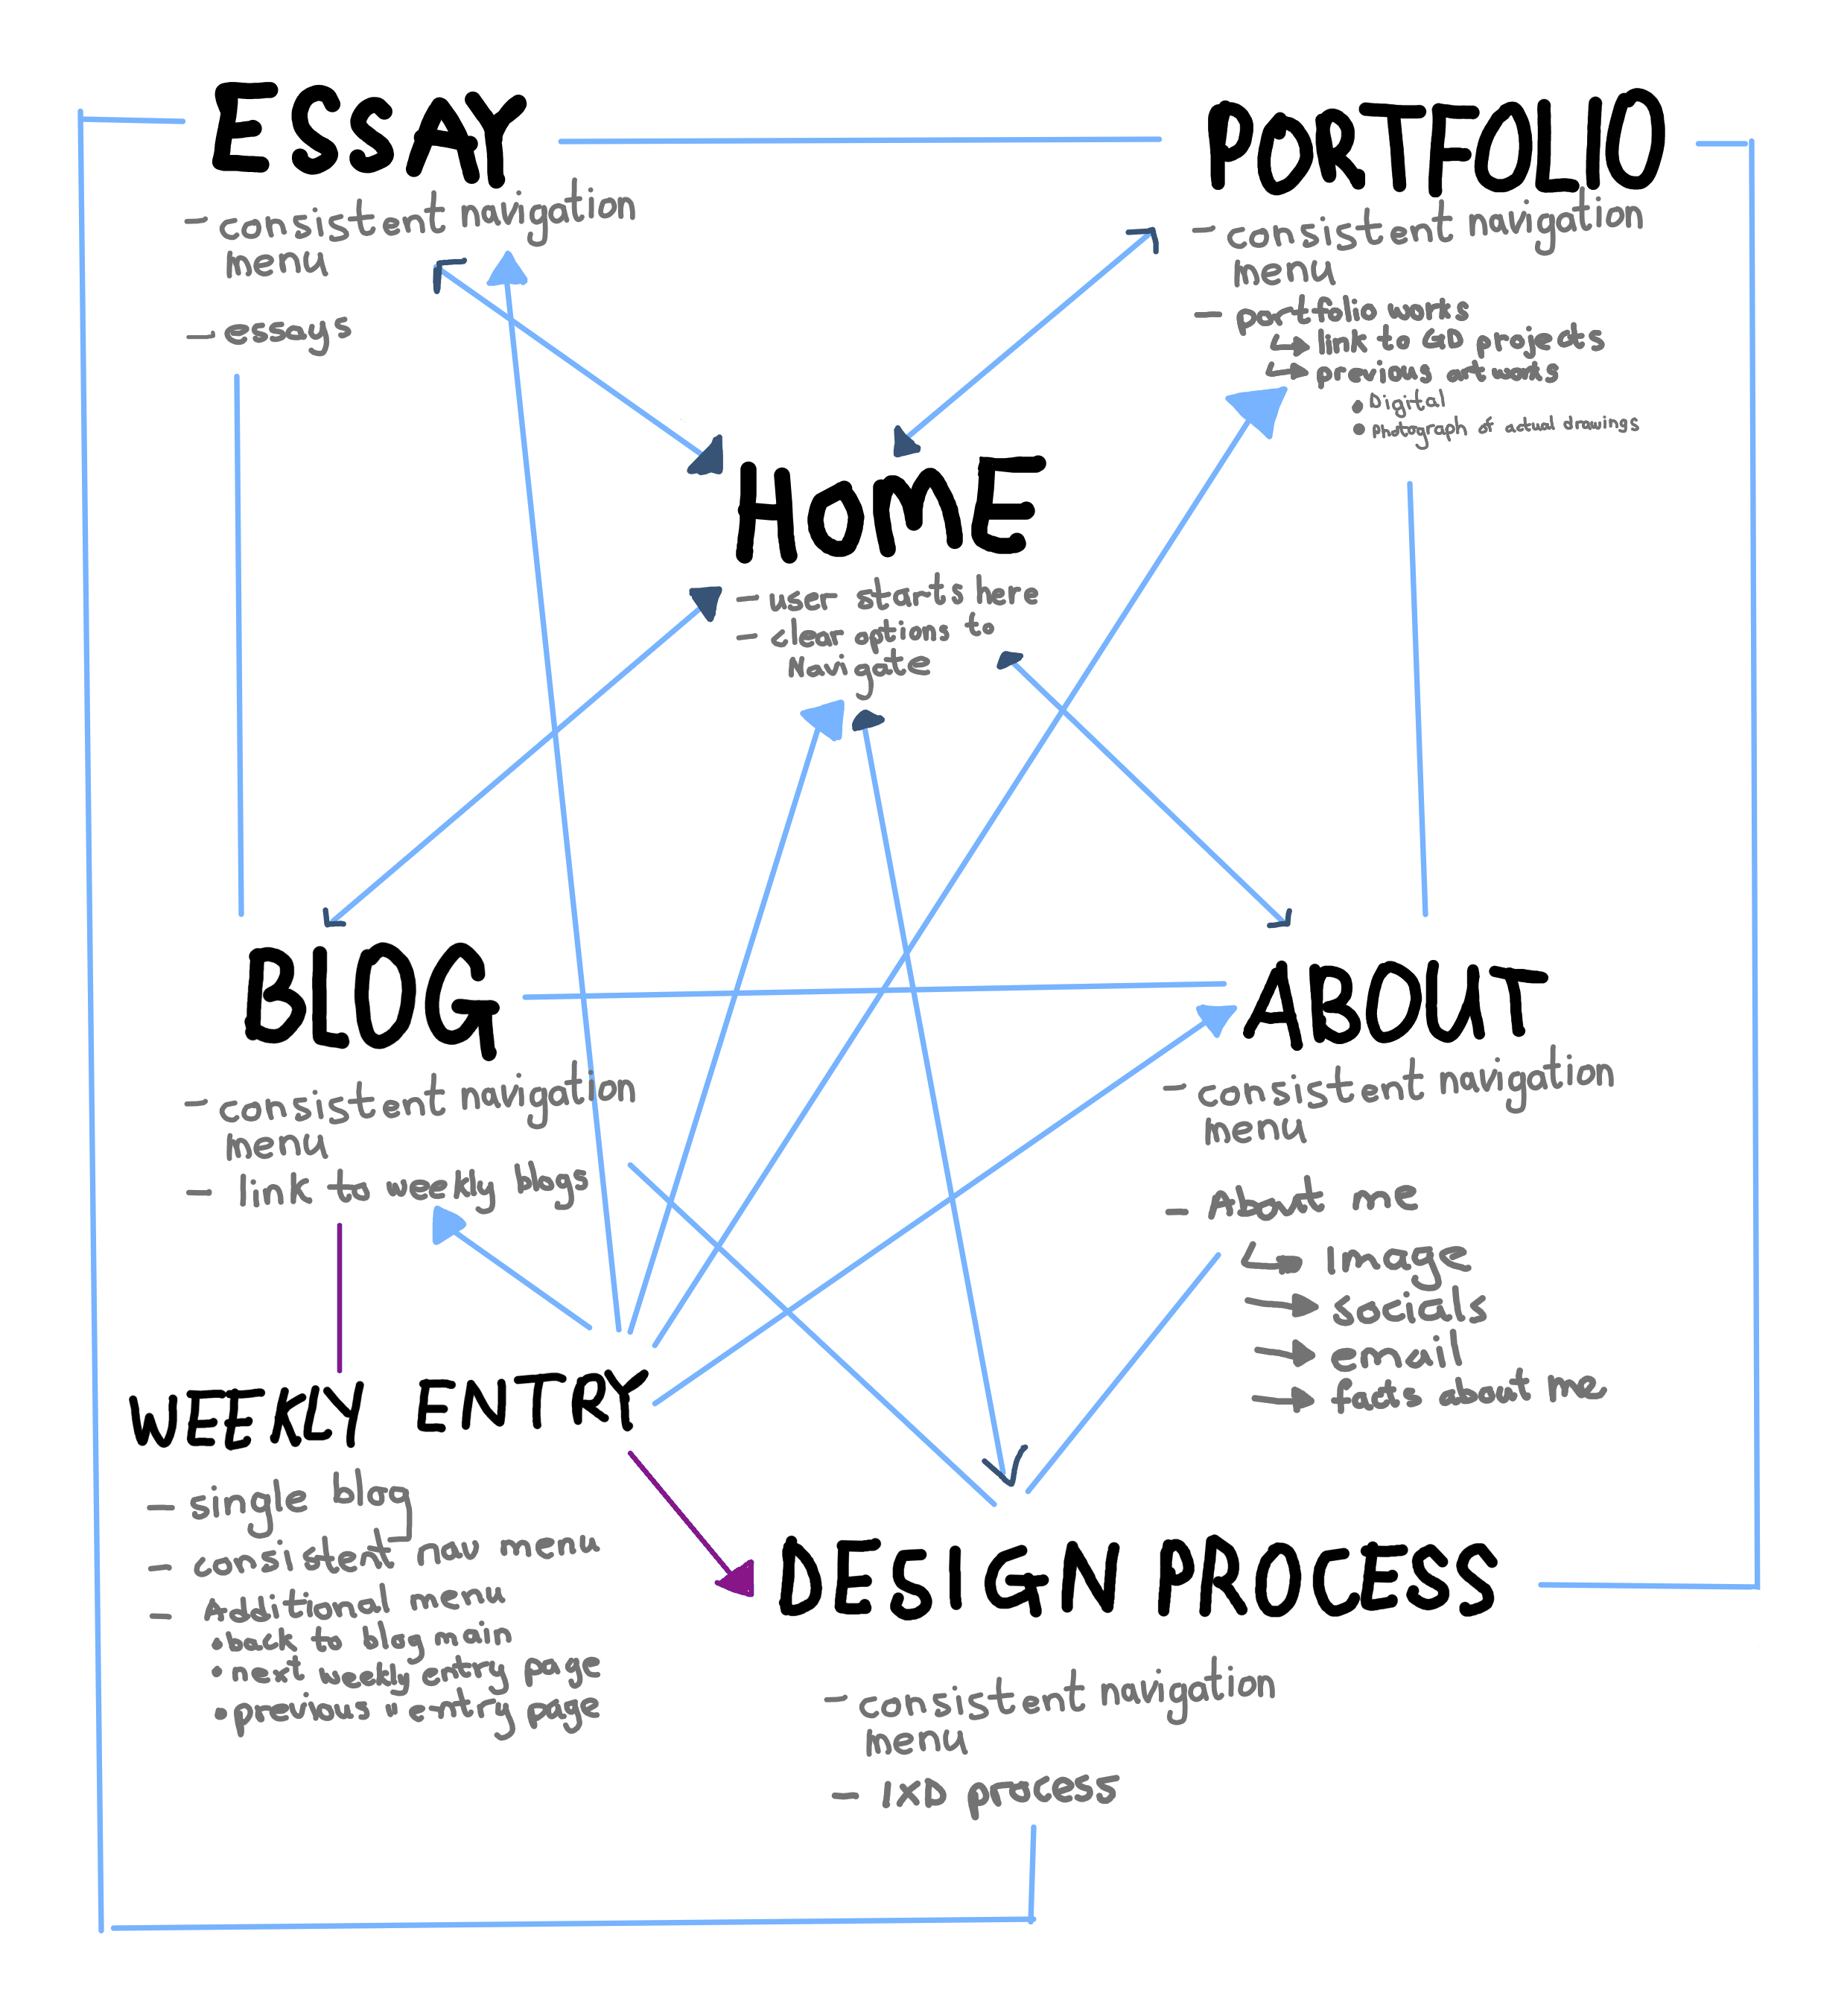 ESSAY
- consistent navigation
menu
- essays
PORTFOLIO
- consistent navigation
menu
- portfolio works
link to GD projects
previous art works
• Digital
• Photograph of actual drawings
HOME
- user starts here
- clear options to
Navigate
BLOG
- consistent navigation
menu
- link to weekly blogs
ABOUT
- consistent navigation
menu
- About me
Image
socials
email
facts about me
WEEKLY ENTRY
- single blog
- consistent nav menu
- Additional menu
• back to blog main
• next weekly entry page
• previous " entry page
DESIGN PROCESS
- consistent navigation
menu
- IXD process